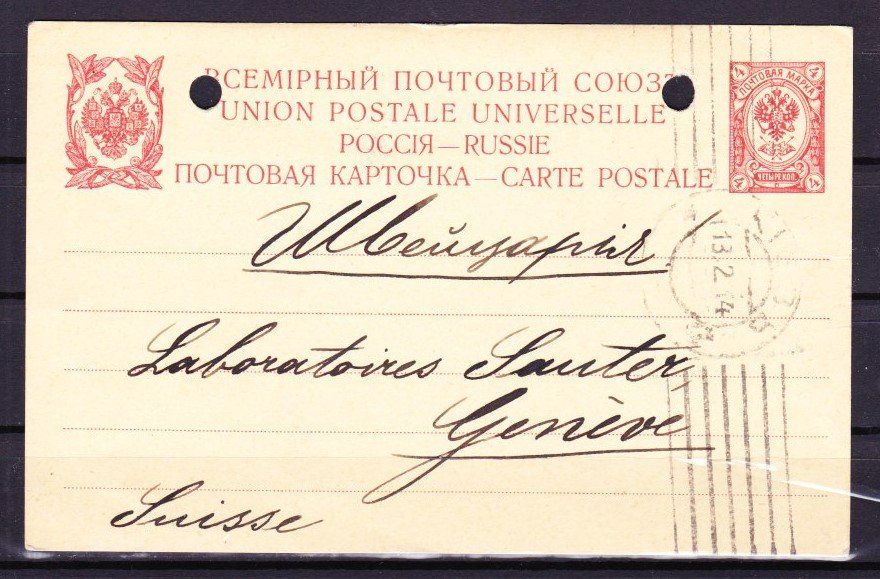 ВСЕМІРНЫЙ ПОЧТОВЫЙ СОЮЗЪ
UNION POSTALE UNIVERSELLE
РОССІЯ — RUSSIE
ПОЧТОВАЯ КАРТОЧКА — CARTE POSTALE
4 4
ПОЧТОВАЯ МАРКА
4 4
ЧЕТЫРЕ КОП.
Швейцарія
13.2.14
Laboratoires Sauter,
Genève
Suisse